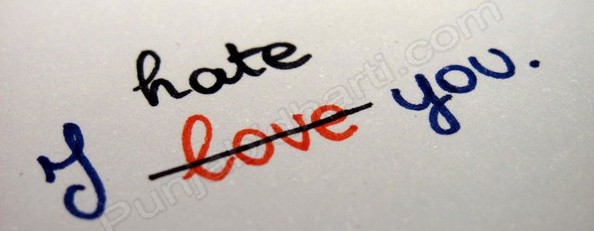 hate
I love you.
PunjabiDharti.com